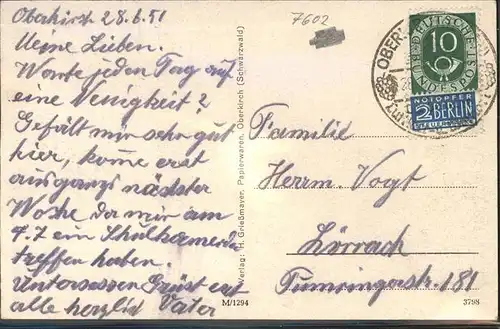 Oberkirst 28.6.51
Meine Lieben.
Warte jeden Tag auf
eine Neuigkeit?
Gefält mir sehr gut
hier, kome erst
ausgangs nächster
Woche da mir am
4.7 ein Schulkamerda
treffen haben.
Unterdessen Grüst euch
alle herzlich Vater
7602
Familie
Herrn. Vogt
Lörrach
Tumringerstr. 181
OBER
DEUTSCHE
BUNDESPOST
10
NOTOPFER
2 BERLIN
STEUERMARKE
Verlag: H. Grießmayer, Papierwaren, Oberkirch (Schwarzwald)
M/1294
3798